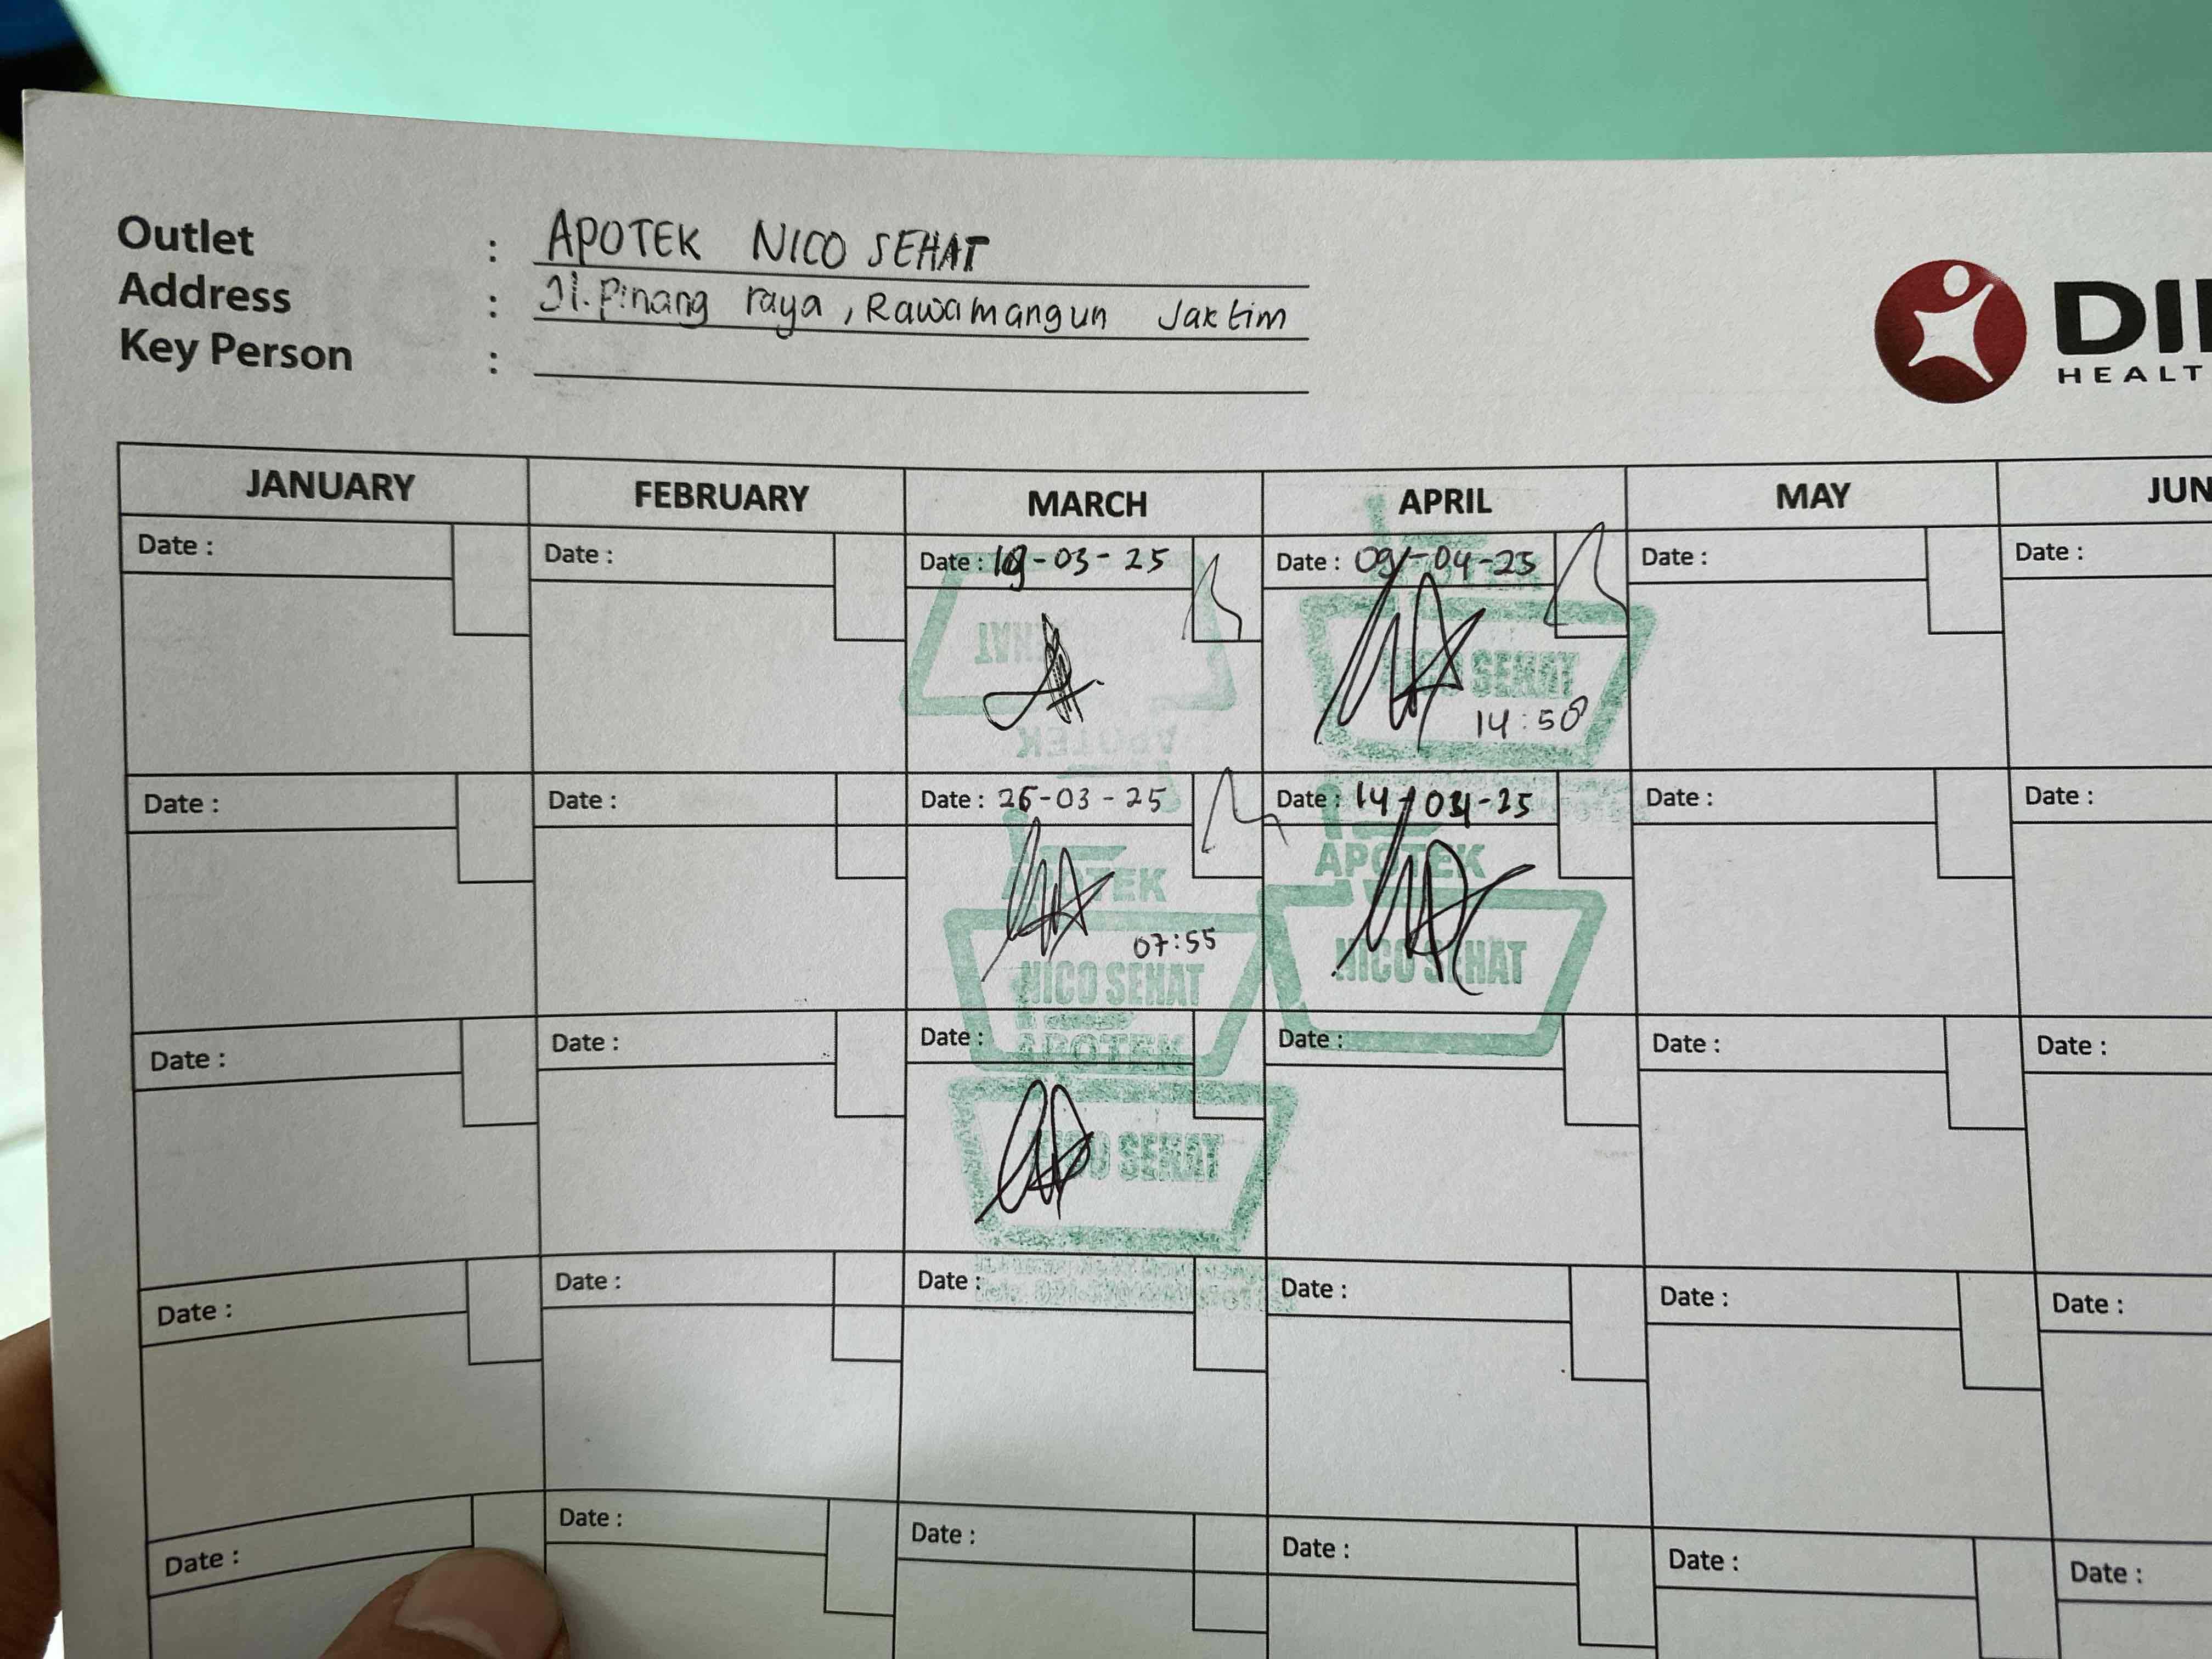 Outlet : APOTEK NICO SEHAT
Address : Jl. Pinang raya, Rawamangun Jaktim
Key Person :
DI
HEALT
JANUARY FEBRUARY MARCH APRIL MAY JUN
Date : Date : Date : -03-25 Date : 09-04-25 Date : Date :
SEHAT
APOTEK
NICO SEHAT
14:50
Date : Date : Date : 26-03-25 Date : 14-04-25 Date : Date :
APOTEK
NICO SEHAT
07:55
APOTEK
NICO SEHAT
Date : Date : Date : Date : Date : Date :
APOTEK
NICO SEHAT
Date : Date : Date : Date : Date : Date :
Date : Date : Date : Date : Date : Date :